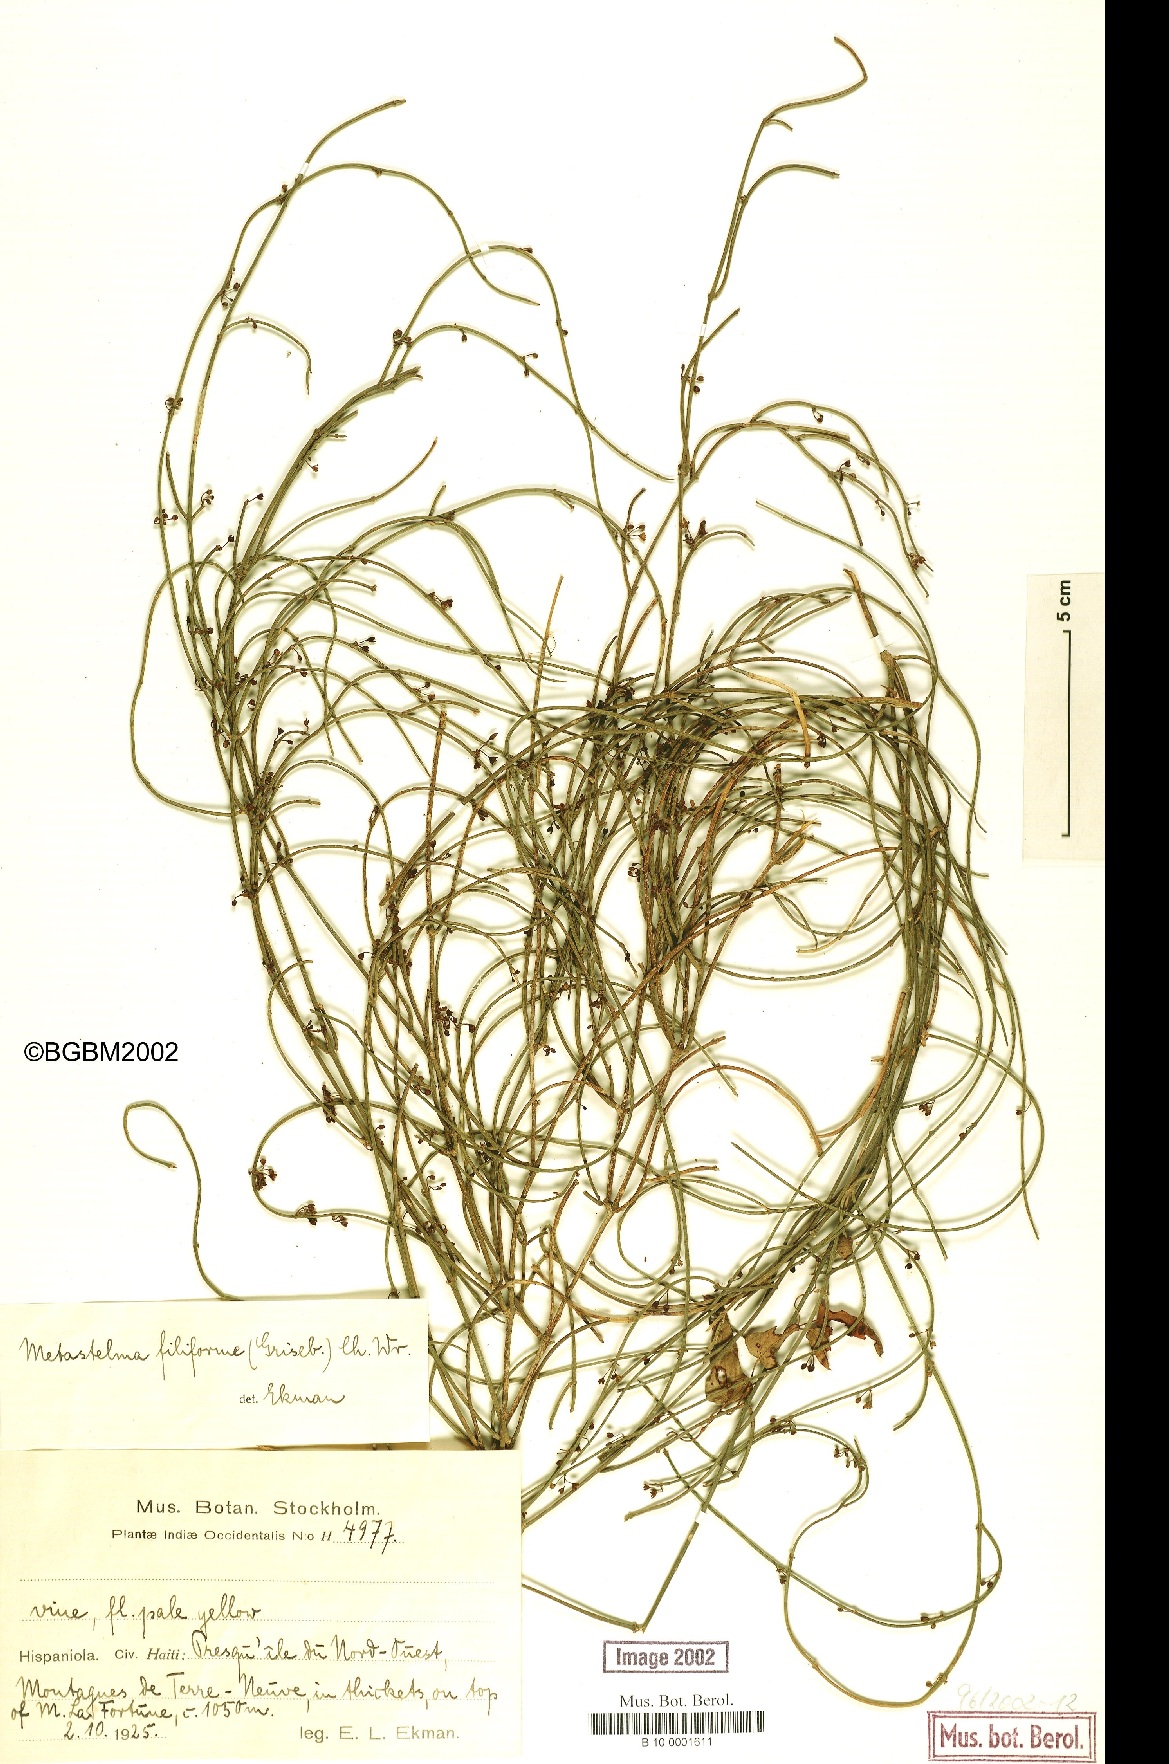 5 cm
©BGBM2002
Metastelma filiforme (Griseb.) Ch. Wr.
det. Ekman
Mus. Botan. Stockholm.
Plantæ Indiæ Occidentalis N:o H 4977.
vine, fl. pale yellow
Hispaniola. Civ. Haiti: Presqu'île du Nord-Ouest,
Montagnes de Terre-Neuve, in thickets, on top
of M. La Fortune, c. 1050 m.
2.10.1925.
leg. E. L. Ekman.
Image 2002
Mus. Bot. Berol.
B 10 0001611
Mus. bot. Berol.